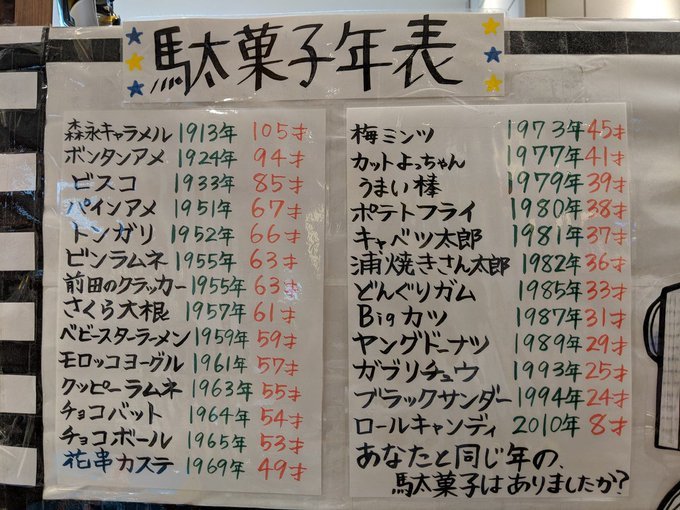 駄菓子年表
森永キャラメル 1913年 105才
ボンタンアメ 1924年 94才
ビスコ 1933年 85才
パインアメ 1951年 67才
トンガリ 1952年 66才
ビンラムネ 1955年 63才
前田のクラッカー 1955年 63才
さくら大根 1957年 61才
ベビースターラーメン 1959年 59才
モロッコヨーグル 1961年 57才
クッピーラムネ 1963年 55才
チョコバット 1964年 54才
チョコボール 1965年 53才
花串カステ 1969年 49才
梅ミンツ 1973年 45才
カットよっちゃん 1977年 41才
うまい棒 1979年 39才
ポテトフライ 1980年 38才
キャベツ太郎 1981年 37才
浦焼きさん太郎 1982年 36才
どんぐりガム 1985年 33才
Bigカツ 1987年 31才
ヤングドーナツ 1989年 29才
ガブリチュウ 1993年 25才
ブラックサンダー 1994年 24才
ロールキャンディ 2010年 8才
あなたと同じ年の、
駄菓子はありましたか?